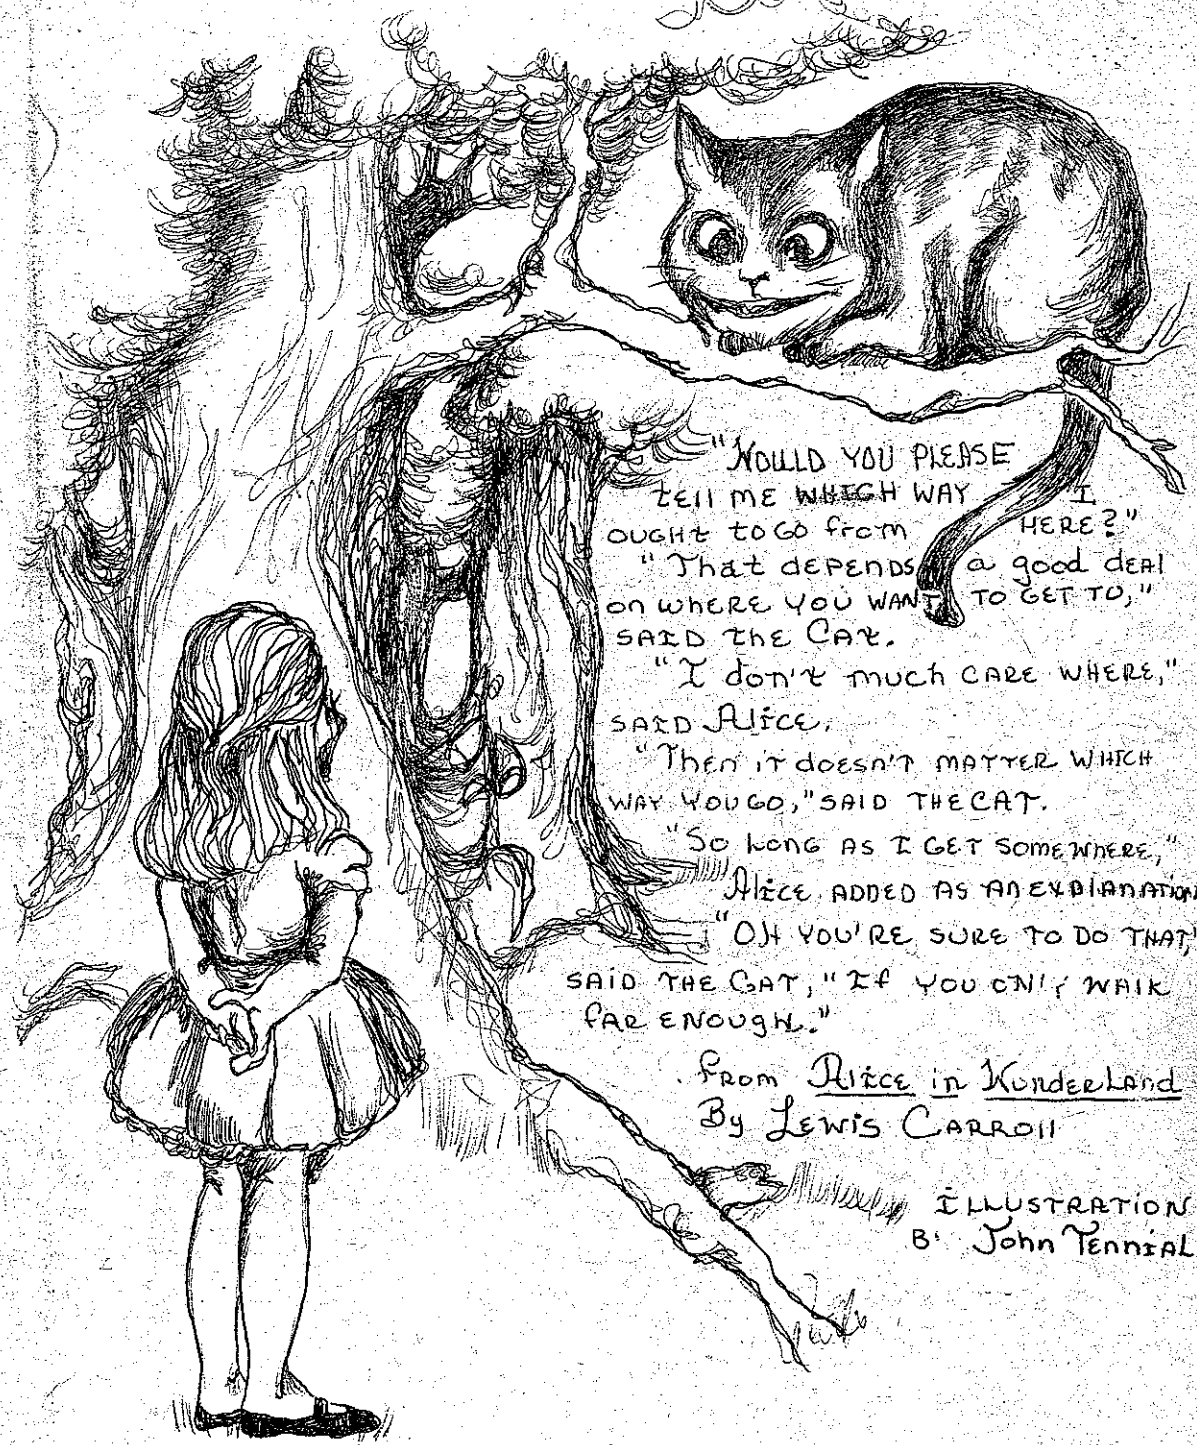 "WOULD YOU PLEASE
tell ME WHICH WAY I
OUGHt to GO from HERE?"
"That dEPENDS a good dEAl
on wHERE YOU WANT TO GET TO,"
SAID the CAt.
"I don't much CARE WHERE,"
SAID Alice.
"Then it doesn't MATTER WHICH
WAY YOU GO," SAID THE CAT.
"SO LONG AS I GET SOMEWHERE,"
Alice ADDED AS AN EXPlANATION
"OH YOU'RE SURE TO DO THAT,"
SAID THE CAT, "If YOU ONlY WAlK
fAR ENOUGH."
from Alice in WonderLand
By LEWIS CARROll
ILLUSTRATION
B. John TENNIAL